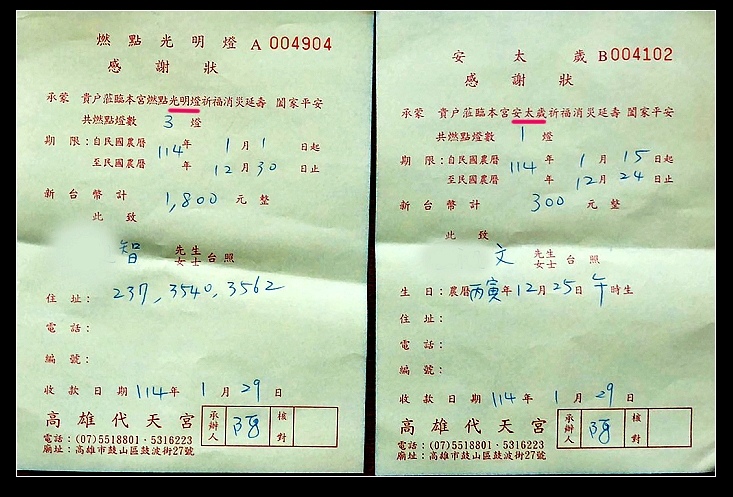 燃點光明燈 A 004904
感謝狀
承蒙 貴户蒞臨本宮燃點光明燈祈福消災延壽 闔家平安
共燃點燈數 3 燈
期 限:自民國農曆 114年 1月 1日起
至民國農曆 年 12月 30日止
新台幣計 1,800 元整
此致
智 先生女士台照
237, 3540, 3562
住址:
電話:
編號:
收款日期 114年 1月 29日
高雄代天宮 承辦人 核對
電話:(07)5518801·5316223
廟址:高雄市鼓山區鼓波街27號
安太歲 B004102
感謝狀
承蒙 貴户蒞臨本宮安太歲祈福消災延壽 闔家平安
共燃點燈數 1 燈
期 限:自民國農曆 114年 1月 15日起
至民國農曆 年 12月 24日止
新台幣計 300 元整
此致
文 先生女士台照
生日:農曆丙寅年12月25日午時生
住址:
電話:
編號:
收款日期 114年 1月 29日
高雄代天宮 承辦人 核對
電話:(07)5518801·5316223
廟址:高雄市鼓山區鼓波街27號